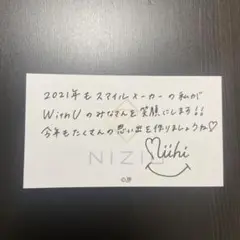 2021年もスマイルメーカーの私が
WithUのみなさんを笑顔にします!!
今年もたくさんの思い出を作りましょうね♡
Miihi
NIZI